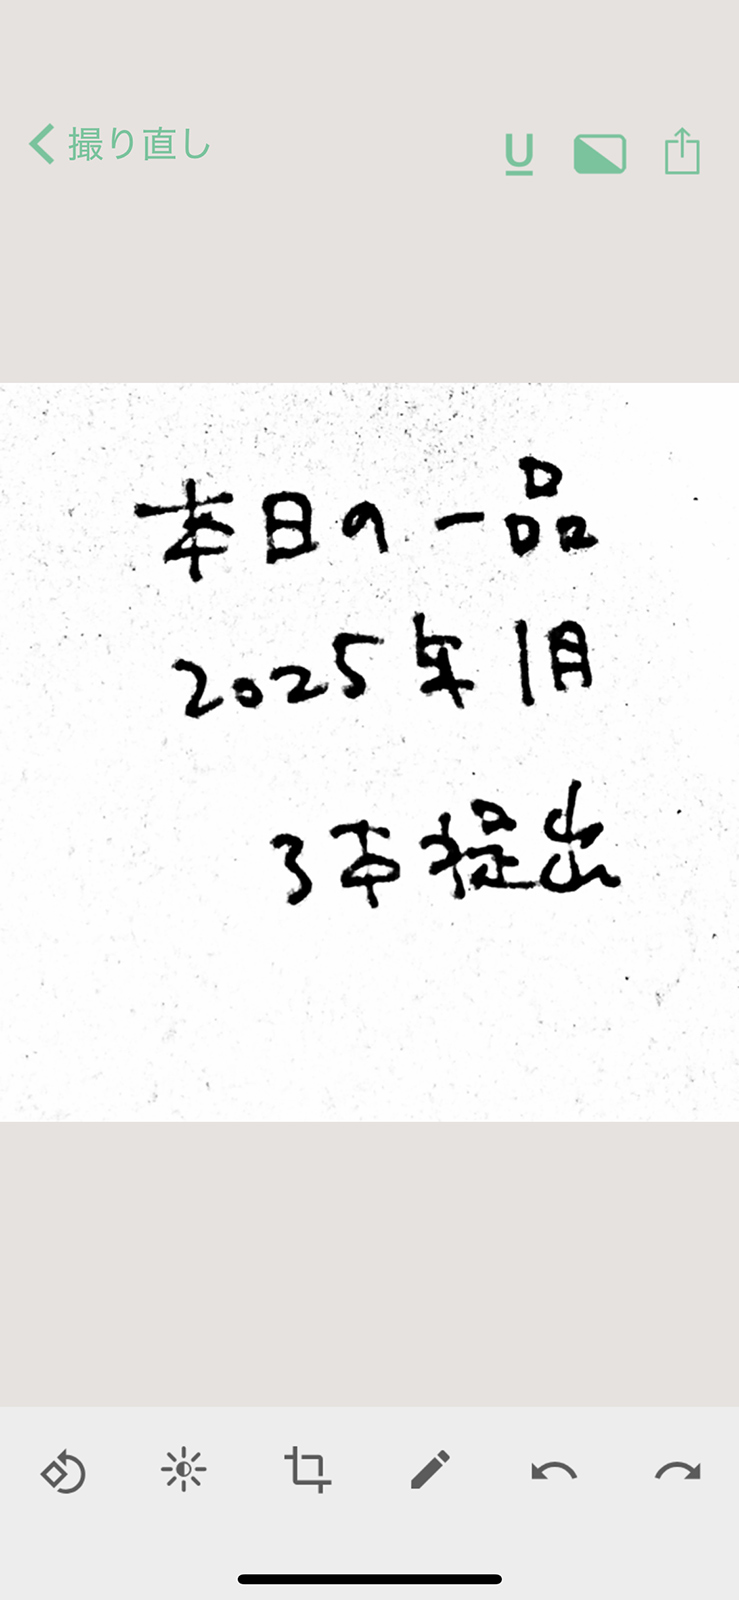 撮り直し
U
本日の一品
2025年1月
3本提出